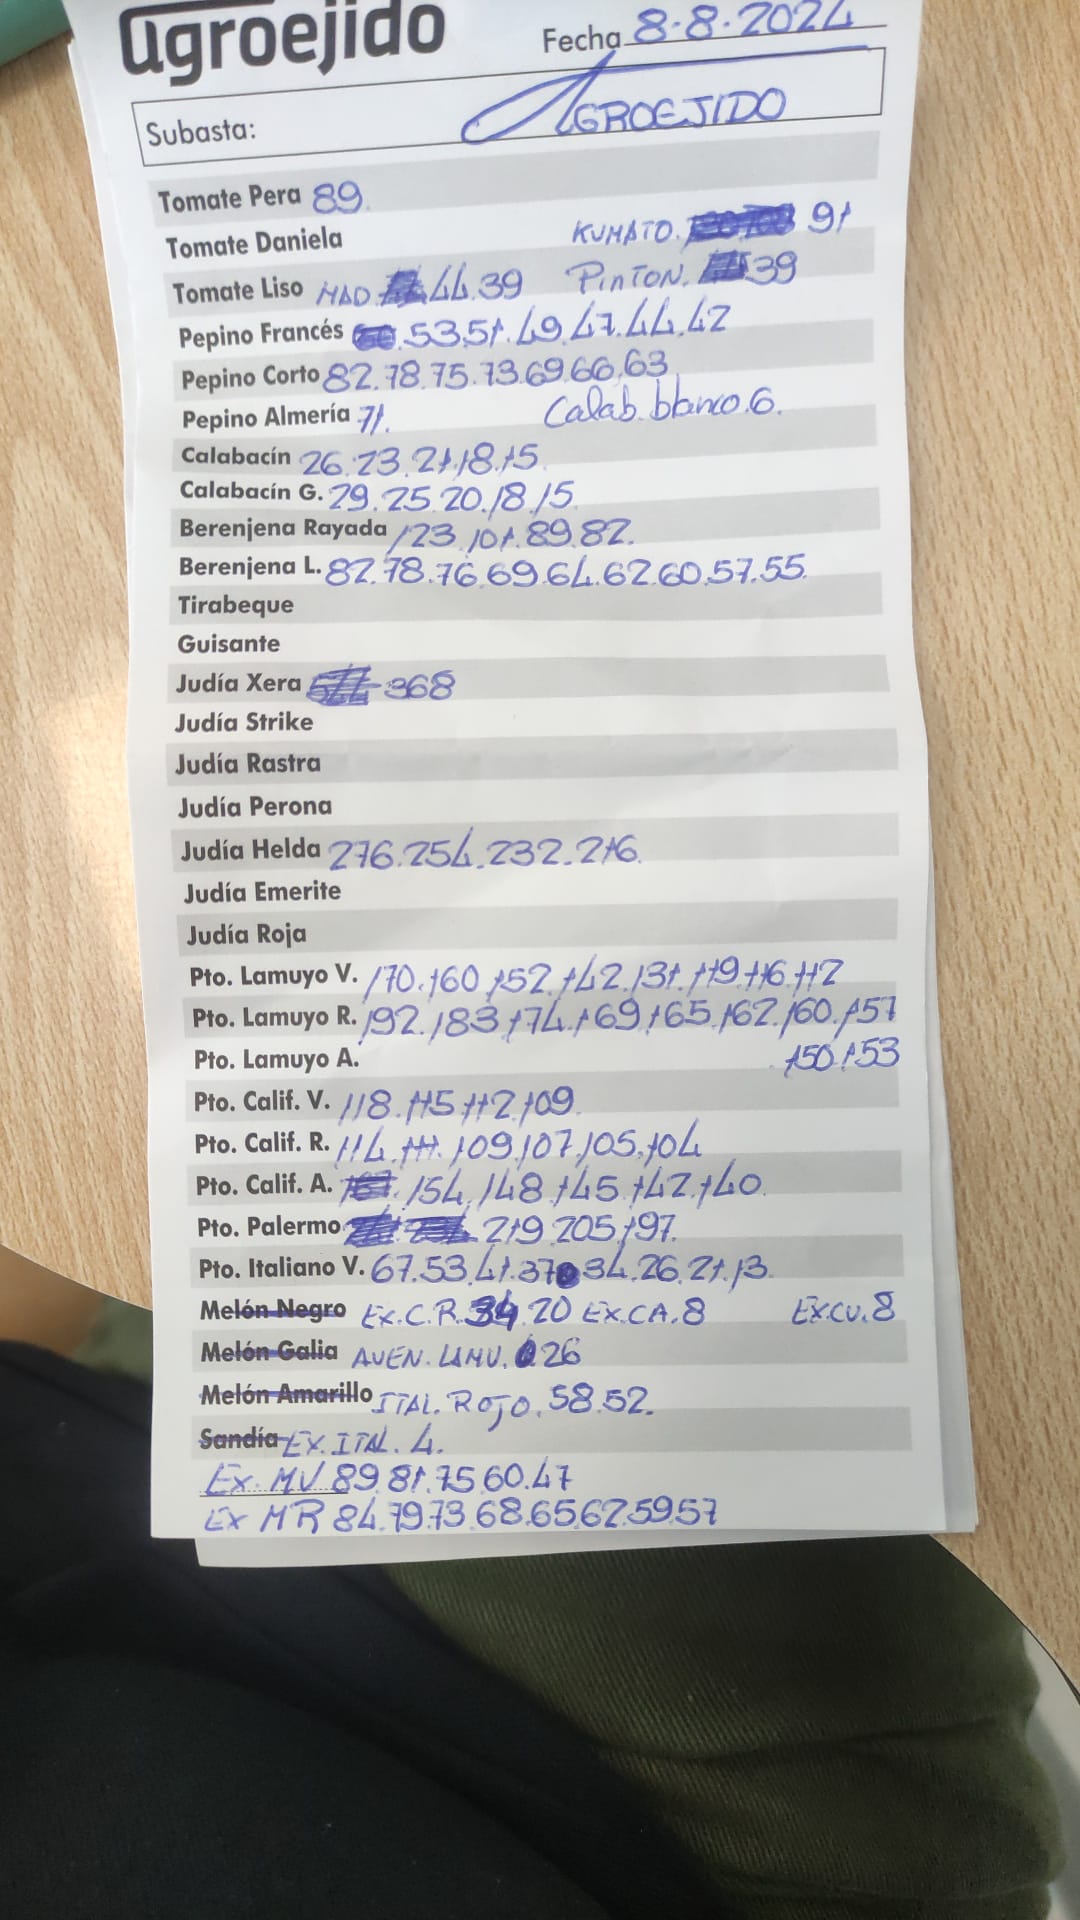 agroejido Fecha 8-8-2024
Subasta: AGROEJIDO
Tomate Pera 89.
Tomate Daniela KUMATO. 91
Tomate Liso MAD. 44.39 PINTON. 39
Pepino Francés .53.51.49.47.44.42
Pepino Corto 82.78.75.73.69.66.63
Pepino Almería 71. Calab. blanco.6.
Calabacín 26.23.21.18.15.
Calabacín G. 29.25.20.18.15.
Berenjena Rayada 123.101.89.82.
Berenjena L. 82.78.76.69.64.62.60.57.55.
Tirabeque
Guisante
Judía Xera 368
Judía Strike
Judía Rastra
Judía Perona
Judía Helda 276.254.232.216.
Judía Emerite
Judía Roja
Pto. Lamuyo V. 170.160.152.142.131.119.116.112
Pto. Lamuyo R. 192.183.174.169.165.162.160.157
Pto. Lamuyo A. 150.153
Pto. Calif. V. 118.115.112.109
Pto. Calif. R. 114.111.109.107.105.104
Pto. Calif. A. 154.148.145.142.140.
Pto. Palermo 219.205.197.
Pto. Italiano V. 67.53.41.37.34.26.21.13.
Melón Negro EX.C.R. 34.20 EX.CA.8 EX.CV.8
Melón Galia AVEN. LAMU. 26
Melón Amarillo ITAL. ROJO. 58.52.
Sandía EX.ITAL. 4.
EX. MV 89.81.75.60.47
EX MR 84.79.73.68.65.62.59.57